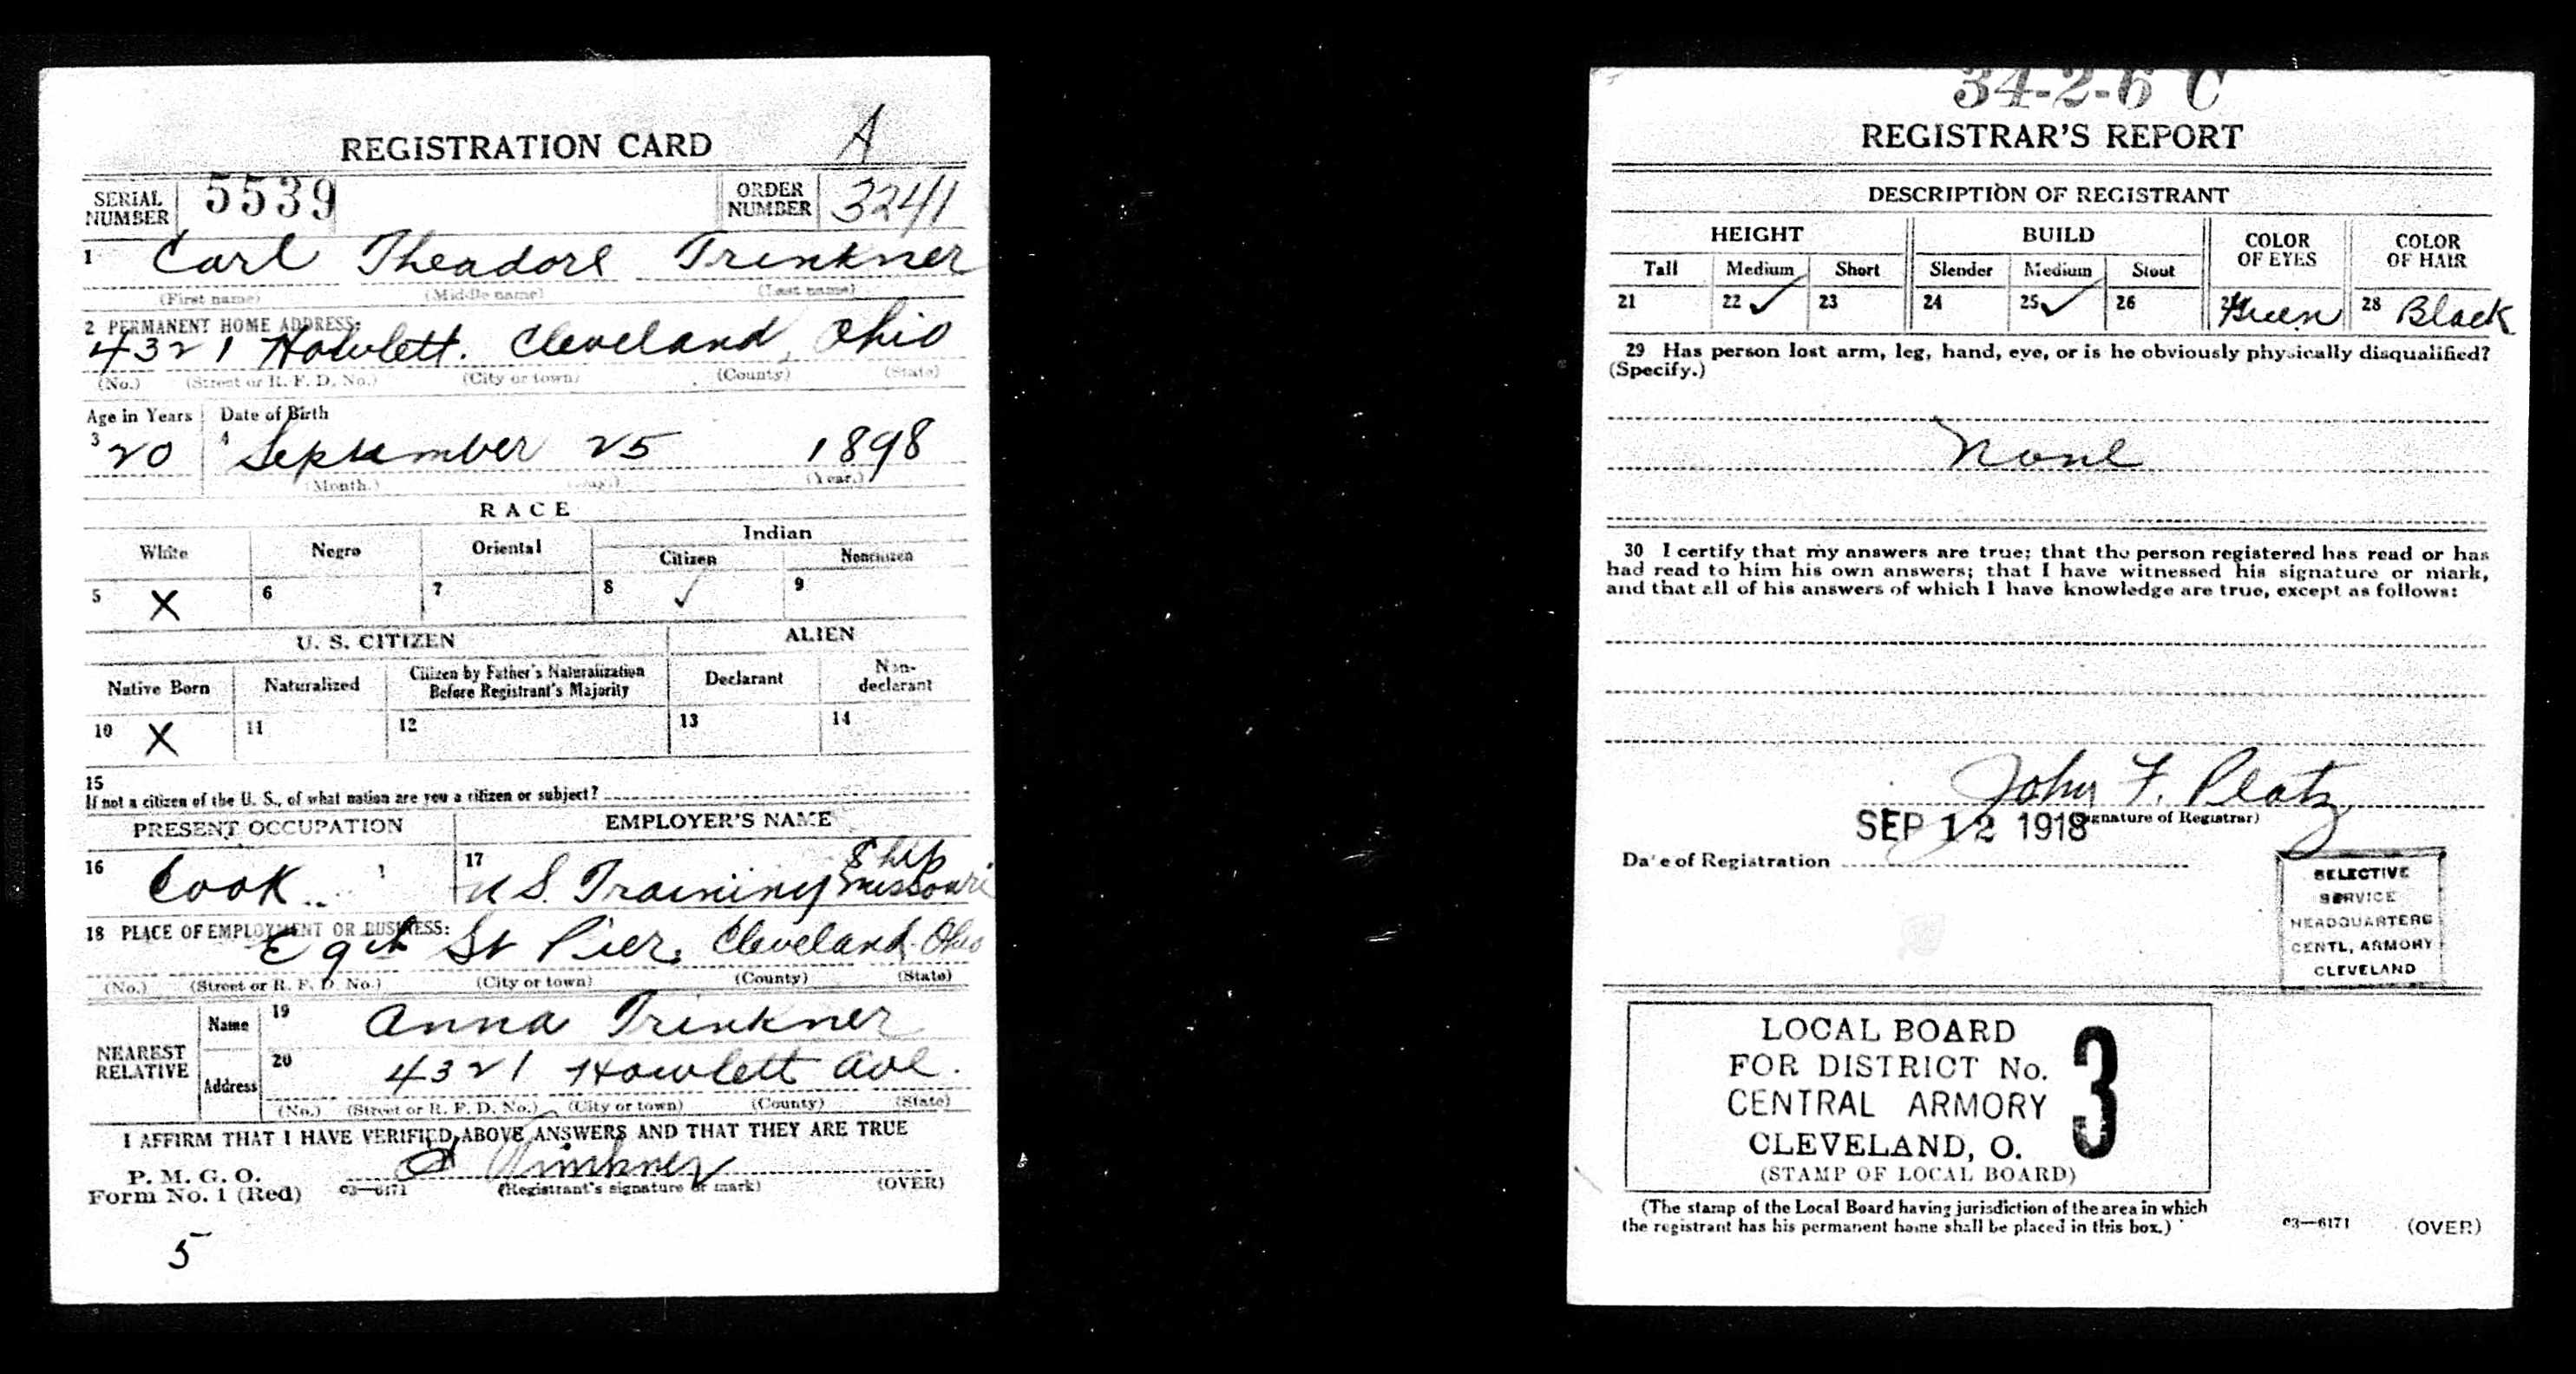 REGISTRATION CARD A
SERIAL NUMBER 5539 ORDER NUMBER 3241
1 Carl Theadore Trinkner
(First name) (Middle name) (Last name)
2 PERMANENT HOME ADDRESS:
4321 Howlett. Cleveland, Ohio
(No.) (Street or R. F. D. No.) (City or town) (County) (State)
Age in Years Date of Birth
3 20 4 September 25 1898
(Month.) (Day.) (Year.)
RACE
White Negro Oriental Indian
Citizen Noncitizen
5 X 6 7 8 ✓ 9
U. S. CITIZEN ALIEN
Native Born Naturalized Citizen by Father's Naturalization Before Registrant's Majority Declarant Non-declarant
10 X 11 12 13 14
15
If not a citizen of the U. S., of what nation are you a citizen or subject?
PRESENT OCCUPATION EMPLOYER'S NAME
16 Cook 17 U S. Training Ship Missouri
18 PLACE OF EMPLOYMENT OR BUSINESS:
E 9th St Pier. Cleveland Ohio
(No.) (Street or R. F. D. No.) (City or town) (County) (State)
NEAREST RELATIVE
Name 19 Anna Trinkner
Address 20 4321 Howlett Ave.
(No.) (Street or R. F. D. No.) (City or town) (County) (State)
I AFFIRM THAT I HAVE VERIFIED ABOVE ANSWERS AND THAT THEY ARE TRUE
P. M. G. O.
Form No. 1 (Red) 03—6171 Trinkner
(Registrant's signature or mark) (OVER)
5
34-2-6 C
REGISTRAR'S REPORT
DESCRIPTION OF REGISTRANT
HEIGHT BUILD COLOR OF EYES COLOR OF HAIR
Tall Medium Short Slender Medium Stout
21 22 ✓ 23 24 25 ✓ 26 27 Green 28 Black
29 Has person lost arm, leg, hand, eye, or is he obviously physically disqualified?
(Specify.)
None
30 I certify that my answers are true; that the person registered has read or has
had read to him his own answers; that I have witnessed his signature or mark,
and that all of his answers of which I have knowledge are true, except as follows:
John F. Platz
(Signature of Registrar)
SEP 12 1918
Date of Registration
SELECTIVE
SERVICE
HEADQUARTERS
CENTL, ARMORY
CLEVELAND
LOCAL BOARD
FOR DISTRICT No. 3
CENTRAL ARMORY
CLEVELAND, O.
(STAMP OF LOCAL BOARD)
(The stamp of the Local Board having jurisdiction of the area in which
the registrant has his permanent home shall be placed in this box.)
03—6171 (OVER)